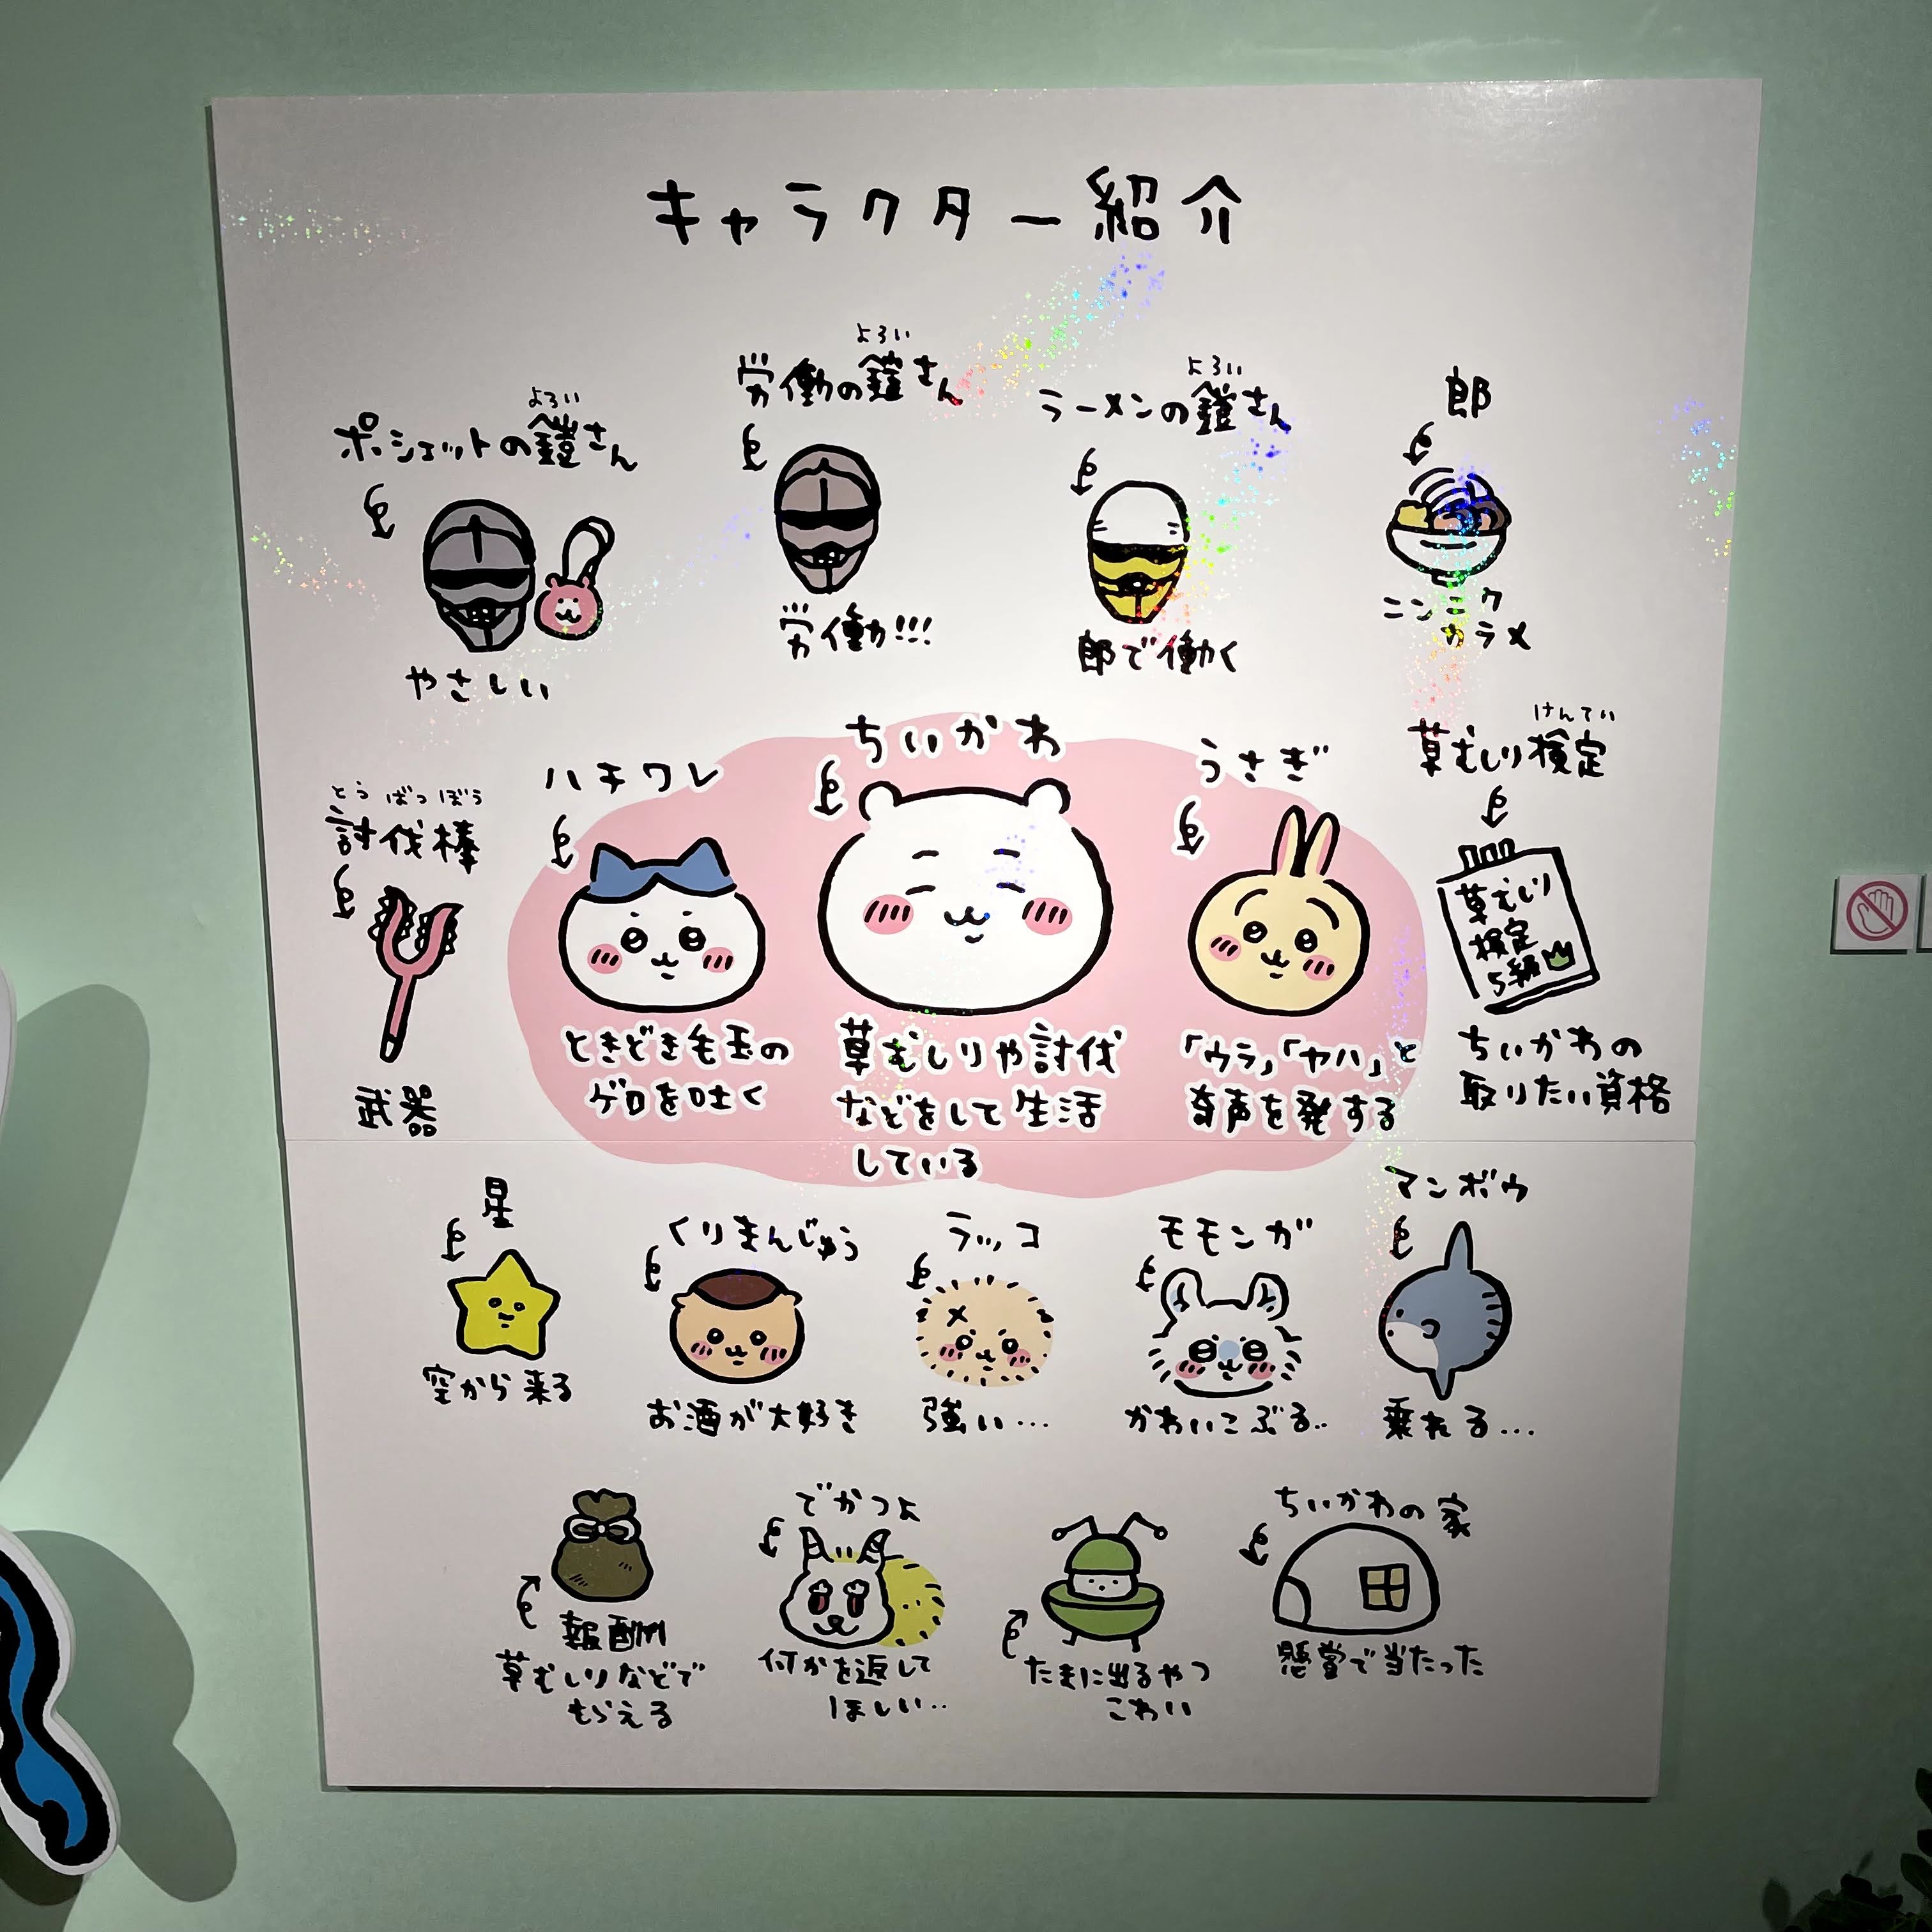 キャラクター紹介
よろい
ポシェットの鎧さん
やさしい
よろい
労働の鎧さん
労働!!!
よろい
ラーメンの鎧さん
郎で働く
郎
ニンニク
カラメ
とうばつぼう
討伐棒
武器
ハチワレ
ときどき毛玉の
ゲロを吐く
ちいかわ
草むしりや討伐
などをして生活
している
うさぎ
「ウラ」「ヤハ」と
奇声を発する
けんてい
草むしり検定
草むしり
検定
5級
ちいかわの
取りたい資格
星
空から来る
くりまんじゅう
お酒が大好き
ラッコ
強い…
モモンガ
かわいこぶる..
マンボウ
乗れる…
報酬
草むしりなどで
もらえる
でかつよ
何かを返して
ほしい..
たまに出るやつ
こわい
ちいかわの家
懸賞で当たった